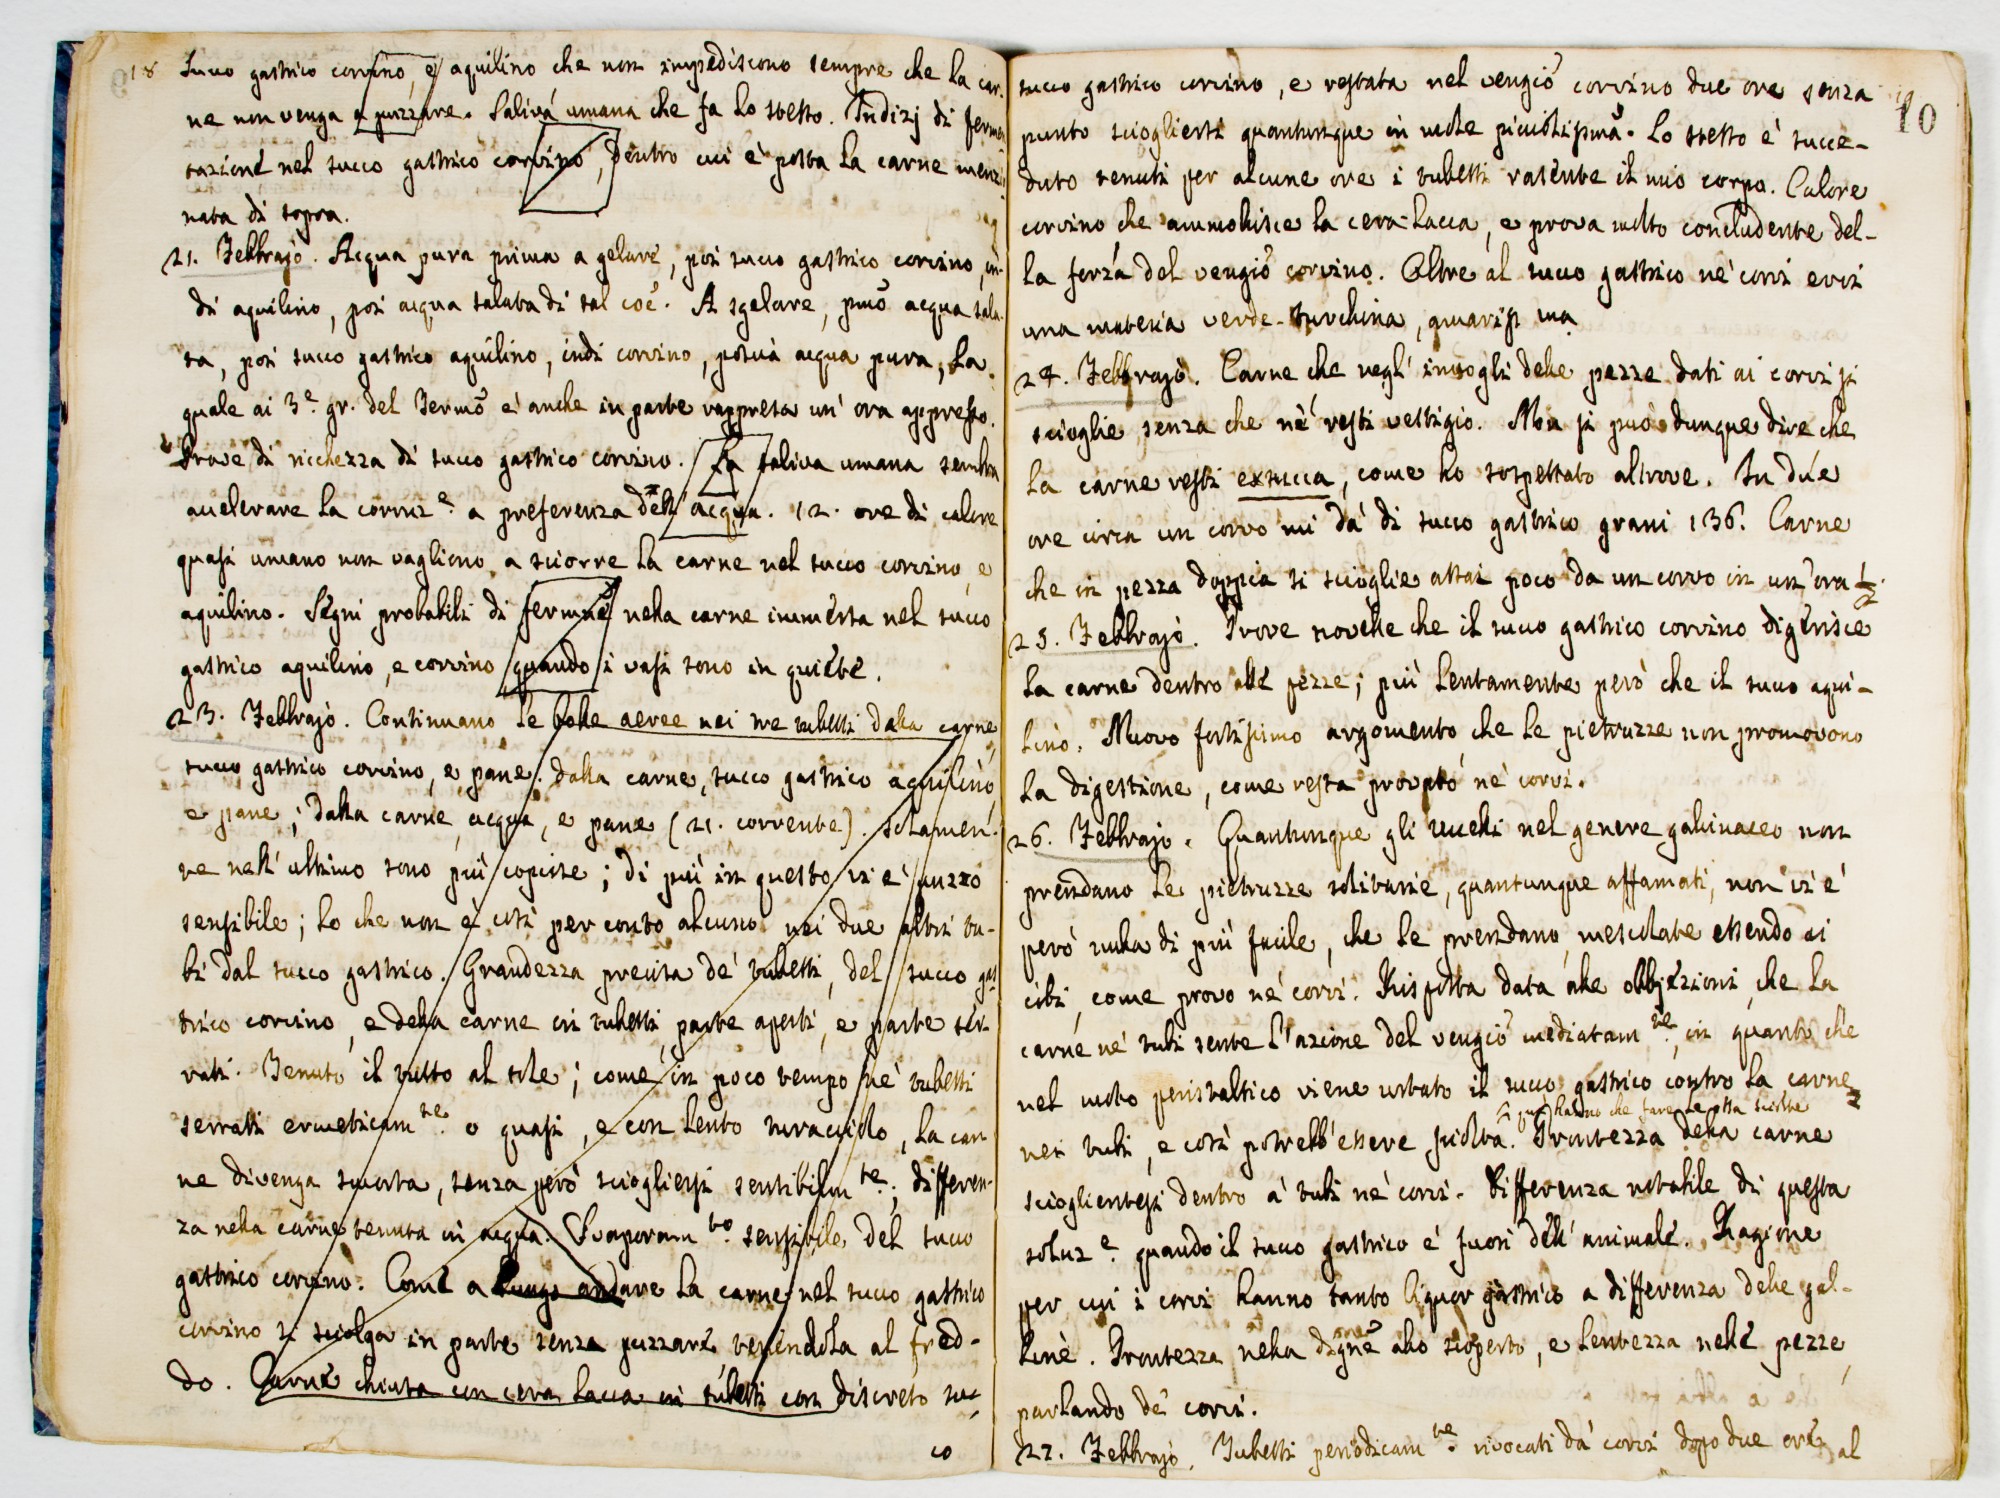 18
Succo gastrico corvino, e aquilino che non impediscono sempre che la car-
ne non venga a puzzare. Saliva umana che fa lo stesso. Indizj di fermen
tazione nel succo gastrico corvino, dentro cui è posta la carne menzio
nata di sopra.
21. Febbrajo. Acqua pura prima a gelare, poi succo gastrico corvino, in-
di aquilino, poi acqua salata di sal coe. A sgelare, pmo acqua sala-
ta, poi succo gastrico aquilino, indi corvino, poscia acqua pura, la
quale ai 3e. gr. del Termo è anche in parte rappresa un' ora appresso.
Prove di ricchezza di succo gastrico corvino. La saliva umana sembra
accelerare la corruze. a preferenza dell' acqua. 12. ore di calore
quasi umano non vagliono a sciorre la carne nel succo corvino, e
aquilino. Segni probabili di fermne nella carne immersa nel succo
gastrico aquilino, e corvino quando i vasi sono in quiete.
23. Febbrajo. Continuano le bolle aeree nei tre tubetti dalla carne
succo gastrico corvino, e pane; dalla carne, succo gastrico aquilino,
e pane; dalla carne, acqua, e pane (21. corrente). Solamen-
te nell' ultimo sono più copiose; di più in questo vi è puzzo
sensibile; lo che non è così per conto alcuno nei due altri tu-
bi dal succo gastrico. Grandezza precisa de' tubetti, del succo gas
trico corvino, e della carne in tubetti, parte aperti, e parte ser-
rati. Tenuto il tutto al sole; come in poco tempo ne' tubetti
serrati ermeticamte. o quasi, e con lento turacciolo, la car
ne divenga smorta, senza però sciogliersi sensibilmte.; differen-
za nella carne tenuta in acqua. Svaporamto. sensibile del succo
gastrico corvino. Come a lungo andare la carne nel succo gastrico
corvino si sciolga in parte senza puzzare, tenendola al fred-
do. Carne chiusa con cera lacca in tubetti con discreto suc-
co
10
succo gastrico corvino, e restata nel vengio corvino due ore senza
punto sciogliersi quantunque in mole picciolissima. Lo stesso è succe-
duto tenuti per alcune ore i tubetti rasente il mio corpo. Calore
corvino che ammollisce la cera-lacca, e prova molto concludente del-
la forza del vengio corvino. Oltre al succo gastrico ne' corvi evvi
una materia verde-turchina, amarissma
24. Febbrajo. Carne che negl' invogli delle pezze dati ai corvi si
scioglie senza che nè resti vestigio. Non si può dunque dire che
la carne resti exsucca, come ho sospettato altrove. In due
ore circa un corvo mi dà di succo gastrico grani 136. Carne
che in pezza doppia si scioglie assai poco da un corvo in un' ora 1/2.
25. Febbrajo. Prove novelle che il succo gastrico corvino digerisce
la carne dentro alle pezze; più lentamente però che il succo aqui-
lino. Nuovo fortissimo argomento che le pietruzze non promovono
la digestione, come resta provato ne' corvi.
26. Febbrajo. Quantunque gli uccelli nel genere gallinaceo non
prendano le pietruzze solitarie, quantunque affamati, non vi è
però nulla di più facile, che le prendano, mescolate essendo ai
cibi, come provo ne' corvi. Risposta data alle obbjezioni, che la
carne ne' tubi sente l'azione del vengio mediatamte., in quanto che
nel moto peristaltico viene urtato il succo gastrico contro la carne
qui hanno che fare le ossa sciolte
nei tubi, e così potrebb' essere sciolta. Prontezza della carne
scioglientesi dentro a' tubi ne' corvi. Differenza notabile di questa
soluze. quando il succo gastrico è fuori dell' animale. Ragione
per cui i corvi hanno tanto liquor gastrico a differenza delle gal-
line. Prontezza nella digne allo scoperto, e lentezza nelle pezze,
parlando de' corvi.
27. Febbrajo. Tubetti periodicamte. rivocati da' corvi dopo due ore, al